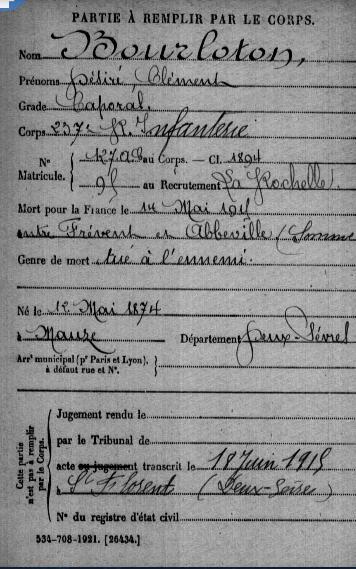 PARTIE À REMPLIR PAR LE CORPS.
Nom Bourloton,
Prénoms Désiré, Clément
Grade Caporal.
Corps 257e R. Infanterie
N° Matricule. { au Corps. — Cl. 1894
au Recrutement La Rochelle.
Mort pour la France le 14 Mai 1915
entre Frévent et Abbeville (Somme
Genre de mort tué à l'ennemi.
Né le 12 Mai 1874
à Mauzé Département Deux-Sèvres
Arrt municipal (pr Paris et Lyon), à défaut rue et N°. }
Cette partie n'est pas à remplir par le Corps.
Jugement rendu le
par le Tribunal de
acte ou jugement transcrit le 18 Juin 1915
à St Florent (Deux-Sèvres)
N° du registre d'état civil
534-708-1921. [26434.]